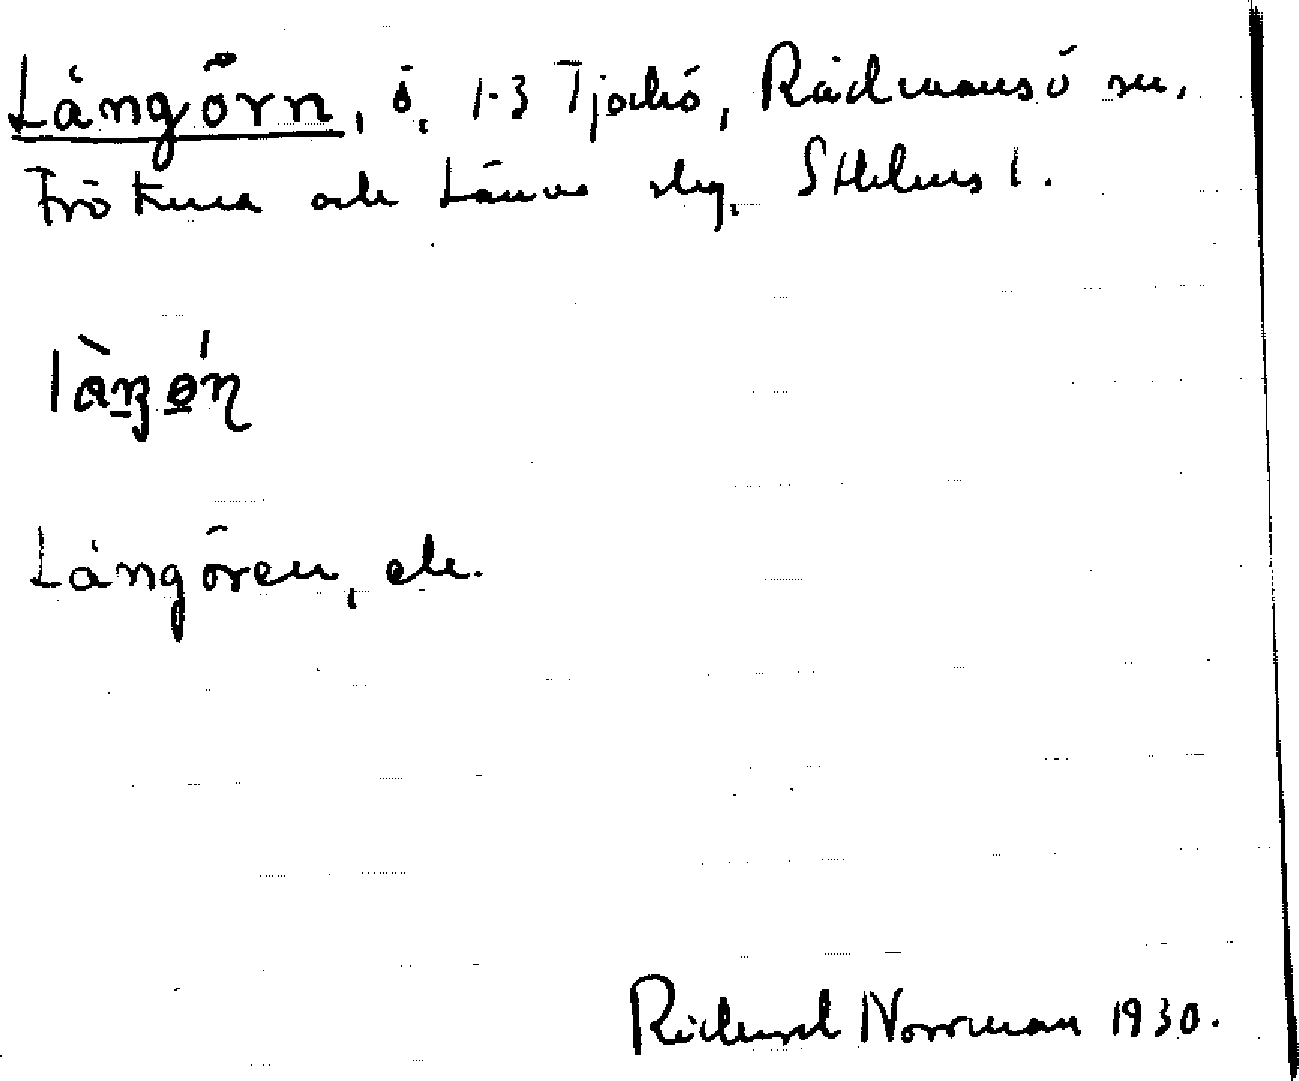 Långörn, ö, 1-3 Tjockö, Rådmansö sn,
Frötuna och Länna slg, Sthlms l.
Långören, ek.
Richard Norrman 1930.